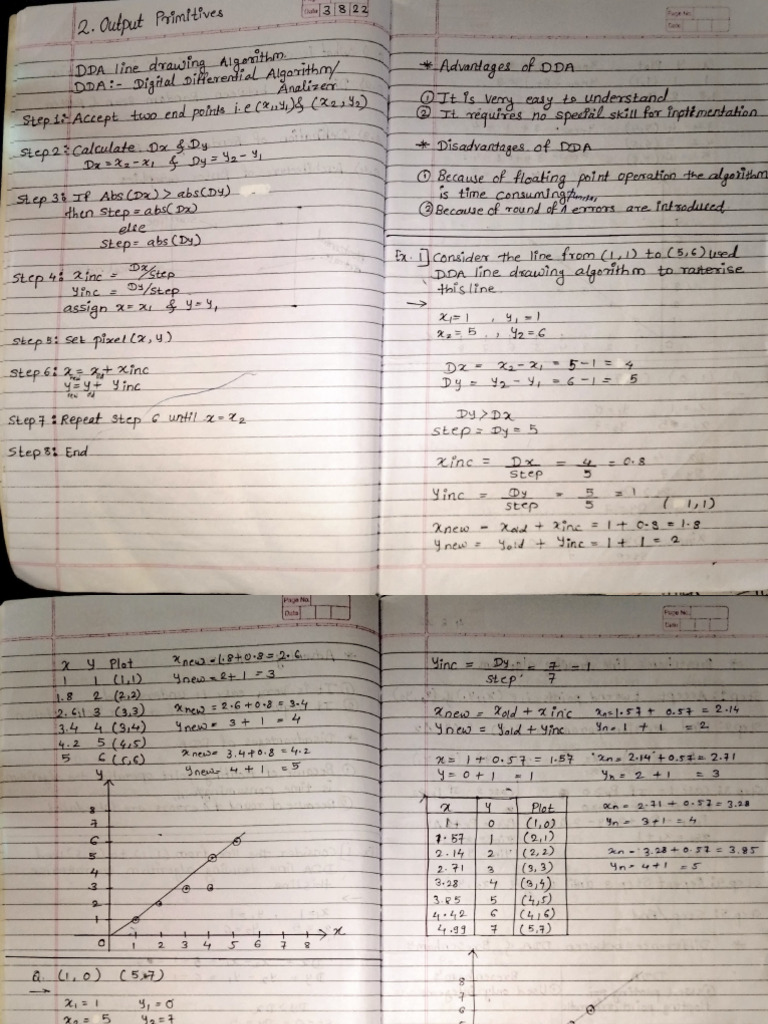 2. Output Primitives
Date 3 8 22
DDA line drawing Algorithm.
DDA:- Digital Differential Algorithm/
Analizer
Step 1: Accept two end points i.e (x1,y1) & (x2,y2)
Step 2: Calculate Dx & Dy
Dx = x2 - x1 & Dy = y2 - y1
Step 3: If Abs(Dx) > abs(Dy)
then Step = abs(Dx)
else
Step = abs(Dy)
Step 4: xinc = Dx/step
yinc = Dy/step
assign x = x1 & y = y1
Step 5: Set pixel (x, y)
Step 6: x new = x old + xinc
y new = y old + yinc
Step 7: Repeat Step 6 until x = x2
Step 8: End
Page No.
Date
* Advantages of DDA
① It is very easy to understand
② It requires no special skill for inplimentation
* Disadvantages of DDA
① Because of floating point operation the algorithm
is time consuming
② Because of round of errors are introduced
Ex. 1] Consider the line from (1,1) to (5,6) used
DDA line drawing algorithm to rasterise
this line.
→
x1 = 1 , y1 = 1
x2 = 5 , y2 = 6
Dx = x2 - x1 = 5 - 1 = 4
Dy = y2 - y1 = 6 - 1 = 5
Dy > Dx
step = Dy = 5
xinc = Dx/step = 4/5 = 0.8
yinc = Dy/step = 5/5 = 1
(1,1)
xnew = xold + xinc = 1 + 0.8 = 1.8
ynew = yold + yinc = 1 + 1 = 2
Page No.
Date
x y Plot
1 1 (1,1)
1.8 2 (2,2)
2.6 3 (3,3)
3.4 4 (3,4)
4.2 5 (4,5)
5 6 (5,6)
xnew = 1.8 + 0.8 = 2.6
ynew = 2 + 1 = 3
xnew = 2.6 + 0.8 = 3.4
ynew = 3 + 1 = 4
xnew = 3.4 + 0.8 = 4.2
ynew = 4 + 1 = 5
Y
8
7
6
5
4
3
2
1
0 1 2 3 4 5 6 7 8 X
Q. (1,0) (5,7)
→
x1 = 1 y1 = 0
x2 = 5 y2 = 7
Page No.
Date
yinc = Dy/step = 7/7 = 1
xnew = xold + xinc xn = 1.57 + 0.57 = 2.14
ynew = yold + yinc yn = 1 + 1 = 2
x = 1 + 0.57 = 1.57 xn = 2.14 + 0.57 = 2.71
y = 0 + 1 = 1 yn = 2 + 1 = 3
x y Plot
1 0 (1,0)
1.57 1 (2,1)
2.14 2 (2,2)
2.71 3 (3,3)
3.28 4 (3,4)
3.85 5 (4,5)
4.42 6 (4,6)
4.99 7 (5,7)
xn = 2.71 + 0.57 = 3.28
yn = 3 + 1 = 4
xn = 3.28 + 0.57 = 3.85
yn = 4 + 1 = 5
8
7
6